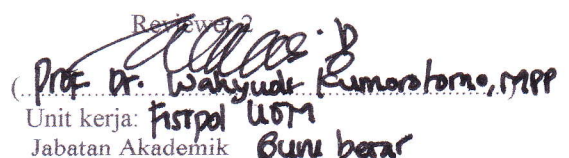 Reviewer 2
(Prof. Dr. Wahyudi Kumorotomo, MPP)
Unit kerja: Fisipol UGM
Jabatan Akademik Guru besar